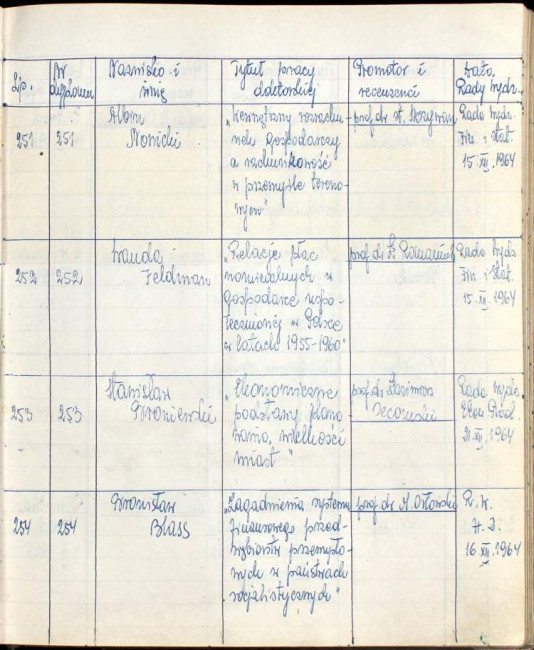 Lp.
Nr dyplomu
Nazwisko i
imię
Tytuł pracy
doktorskiej
Promotor i
recenzenci
Data
Rady wydz.
251
251
Albin
Nowicki
„Wewnętrzny rozrachu-
nek gospodarczy
a rachunkowość
w przemyśle tereno-
wym"
prof. dr A.
Rada Wydz.
Fin. i Stat.
15.XII.1964
252
252
Wanda
Feldman
„Relacje płac
nominalnych w
gospodarce uspo-
łecznionej w Polsce
w latach 1955-1960"
prof. dr K. Romaniuk
Rada Wydz.
Fin. i Stat.
15.XII.1964
253
253
Stanisław
Broniewski
„Ekonomiczne
podstawy plano-
wania wielkości
miast"
prof. dr Kazimierz
Secomski
Rada Wydz.
XII.1964
254
254
Bronisław
Blass
„Zagadnienia systemu
finansowego przed-
siębiorstw przemysło-
wych w państwach
socjalistycznych"
prof. dr M. Orłowski
R. W.
H. Z.
16.XII.1964